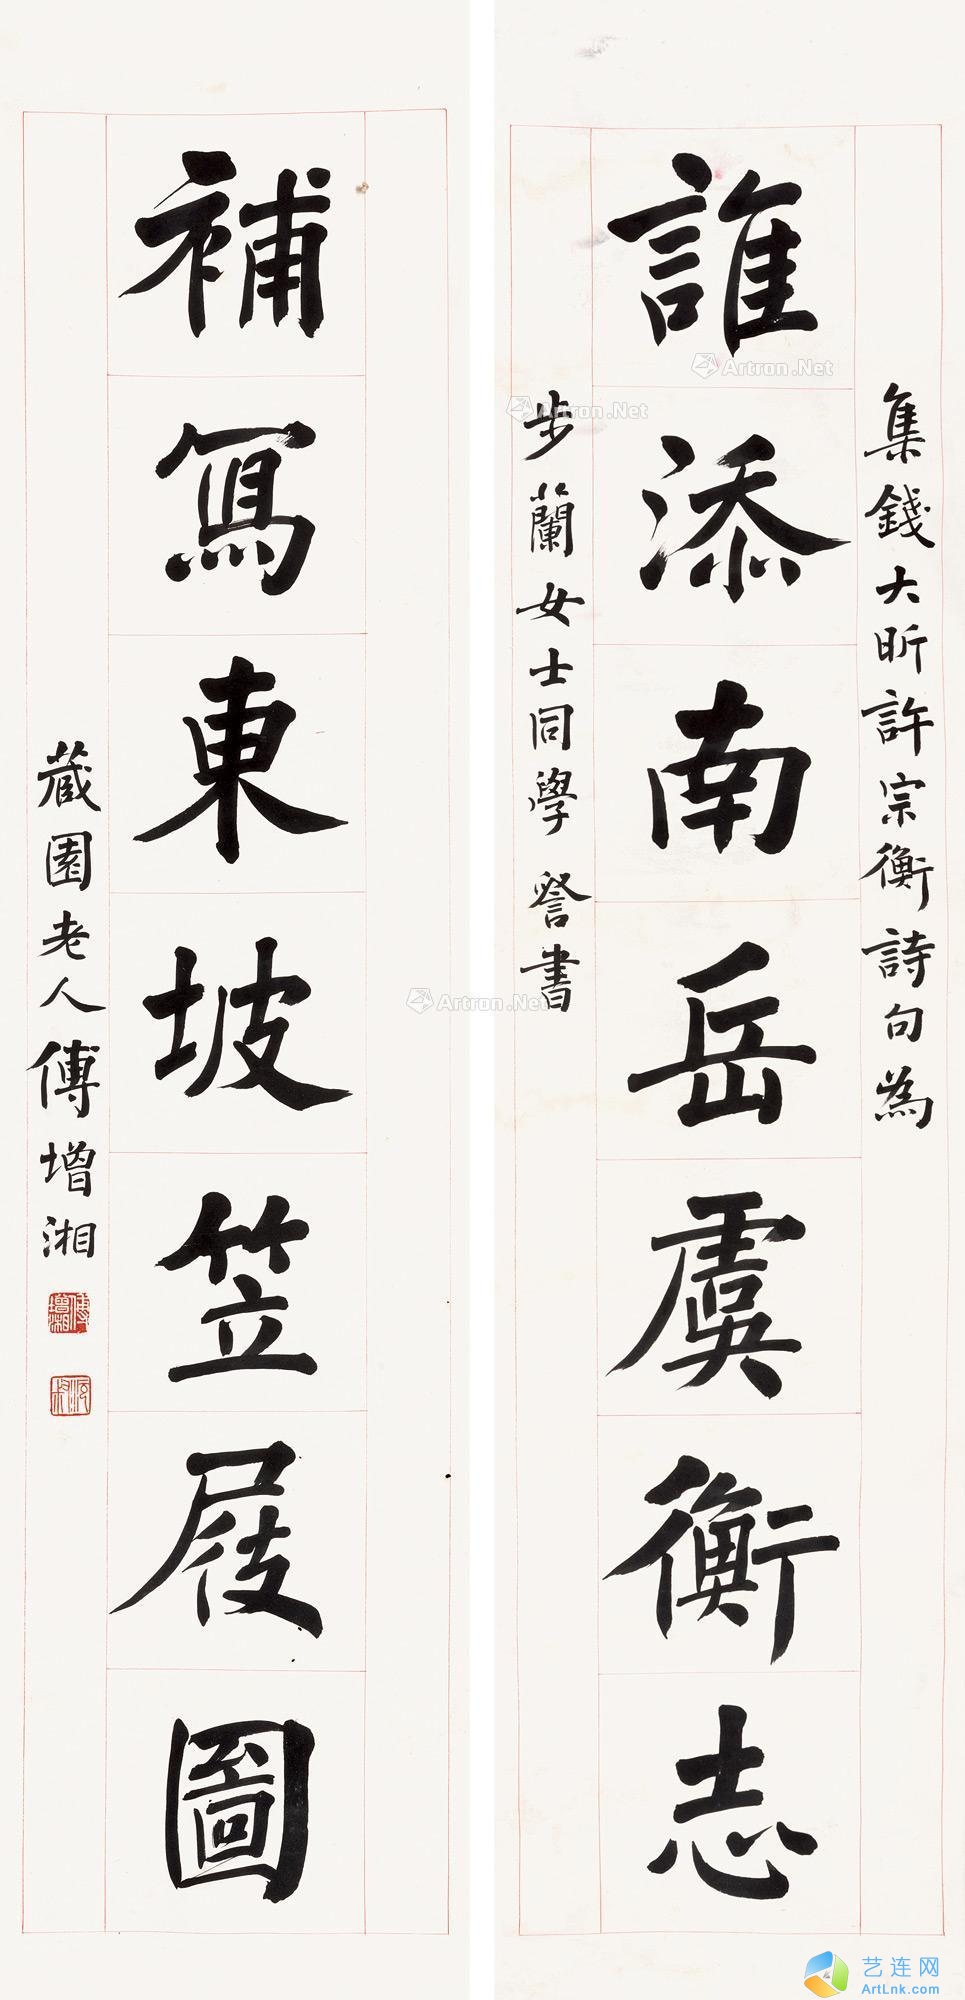 集錢大昕許宗衡詩句為
誰添南岳虞衡志
步蘭女士同學詧書
補寫東坡笠屐圖
藏園老人傅增湘
傅增湘
沅叔
Artron.Net
Artron.Net
Artron.Net
艺连网
ArtLnk.com